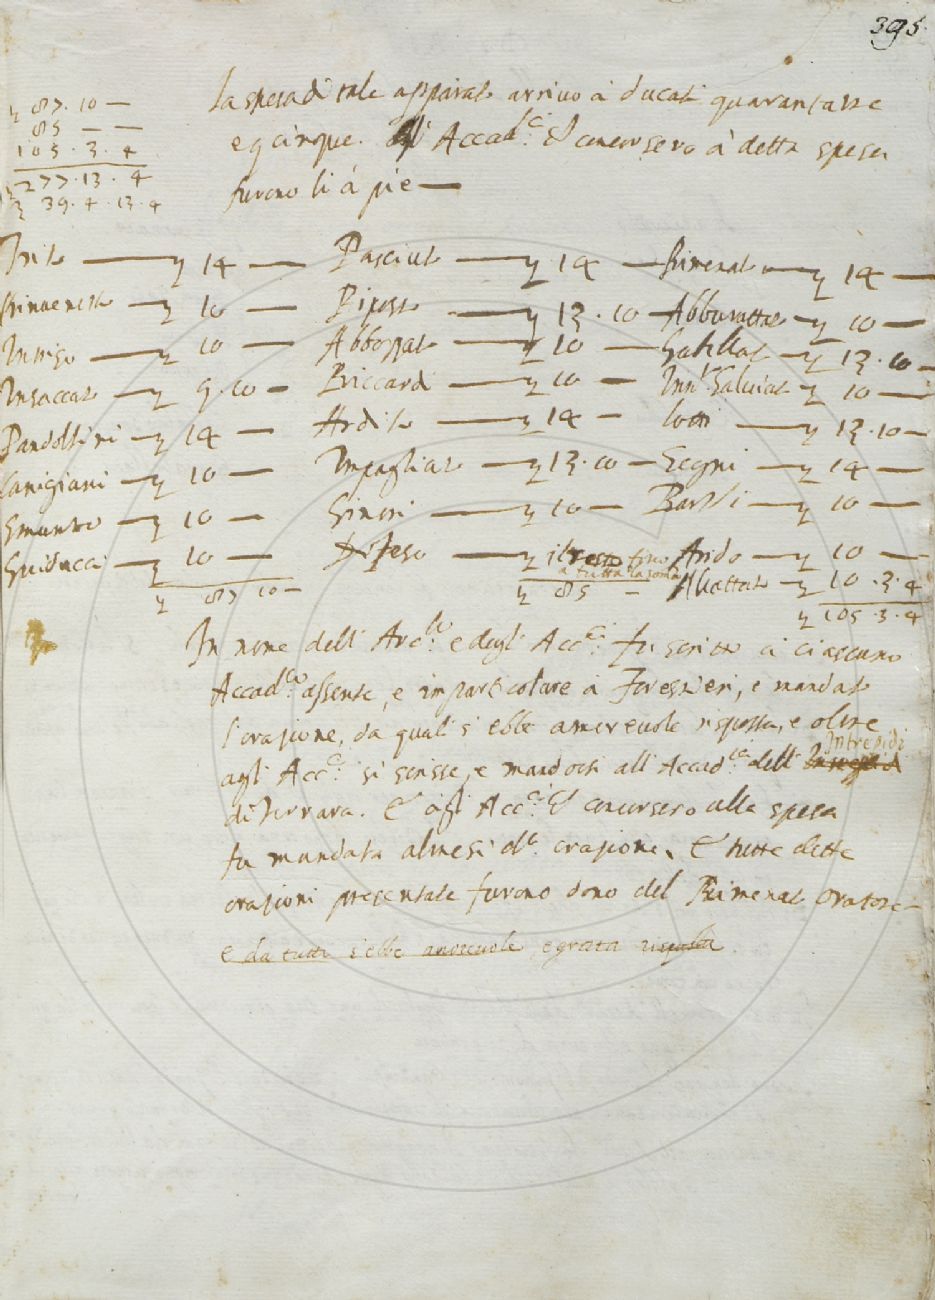 395.
87.10 —
85 — —
105.3.4
277.13.4
39.4.13.4
La spesa di tale apparato arrivò à ducati quarantatre
e g cinque. Gl' Accad.ci ch' concorsero à detta spesa
furono li à piè —
Trito — 14 — Pasciuto — 14 — Rimenato — 14 —
Rinvenuto — 10 — Riposto — 13.10 — Abburattato — 10 —
Intriso — 10 — Abbozzato — 10 — Gabellato — 13.10 —
Insaccato — 9.10 — Riccardi — 10 — Salviati — 10 —
Pandolfini — 14 — Ardito — 14 — Cotti — 13.10 —
Canigiani — 10 — Impagliato — 13.10 — Segni — 14 —
Smunto — 10 — Ginori — 10 — Bardi — 10 —
Guiducci — 10 — Difeso — il resto fino a tutta la soma Arido — 10 —
87 10 — 85 — Aliattato — 10.3.4
105.3.4
In nome dell' Arc.lo e degl' Acc.ci fu scritto à ciascuno
Accad.co assente, e in particolare à Forestieri, e mandato
l'orazione, da quali s' ebbe amorevole risposta, e oltre
agl' Acc.ci si scrisse, e mandossi all' Accad.ia dell' Intrepidi
di Ferrara. E agl' Acc.ci ch' concorsero alla spesa
fu mandata almesi d.a orazione. E tutte dette
orazioni presentate furono dono del Rimenato Oratore —
e da tutti s'ebbe amorevole e grata risposta.